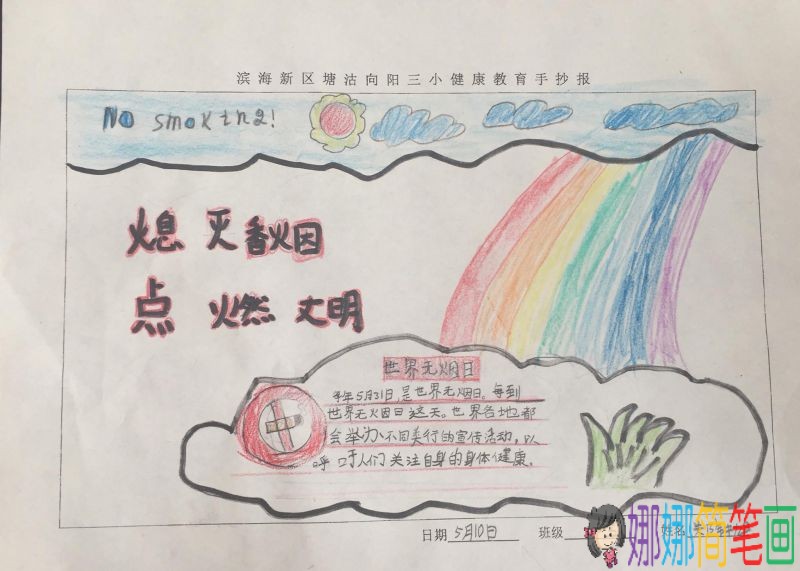 滨海新区塘沽向阳三小健康教育手抄报
No smoking!
熄灭香烟
点燃文明
世界无烟日
每年5月31日,是世界无烟日。每到
世界无烟日这天。世界各地都
会举办不同类行的宣传活动,以
呼吁人们关注自身的身体健康.
日期 5月10日 班级 姓名
娜娜简笔画